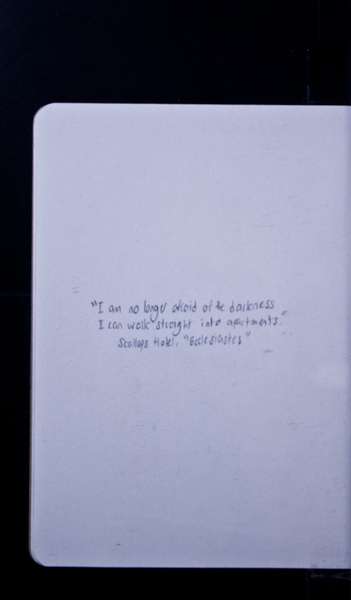 "I am no longer afraid of the darkness
I can walk straight into apartments."
Scallops Hotel, "Ecclesiastes"